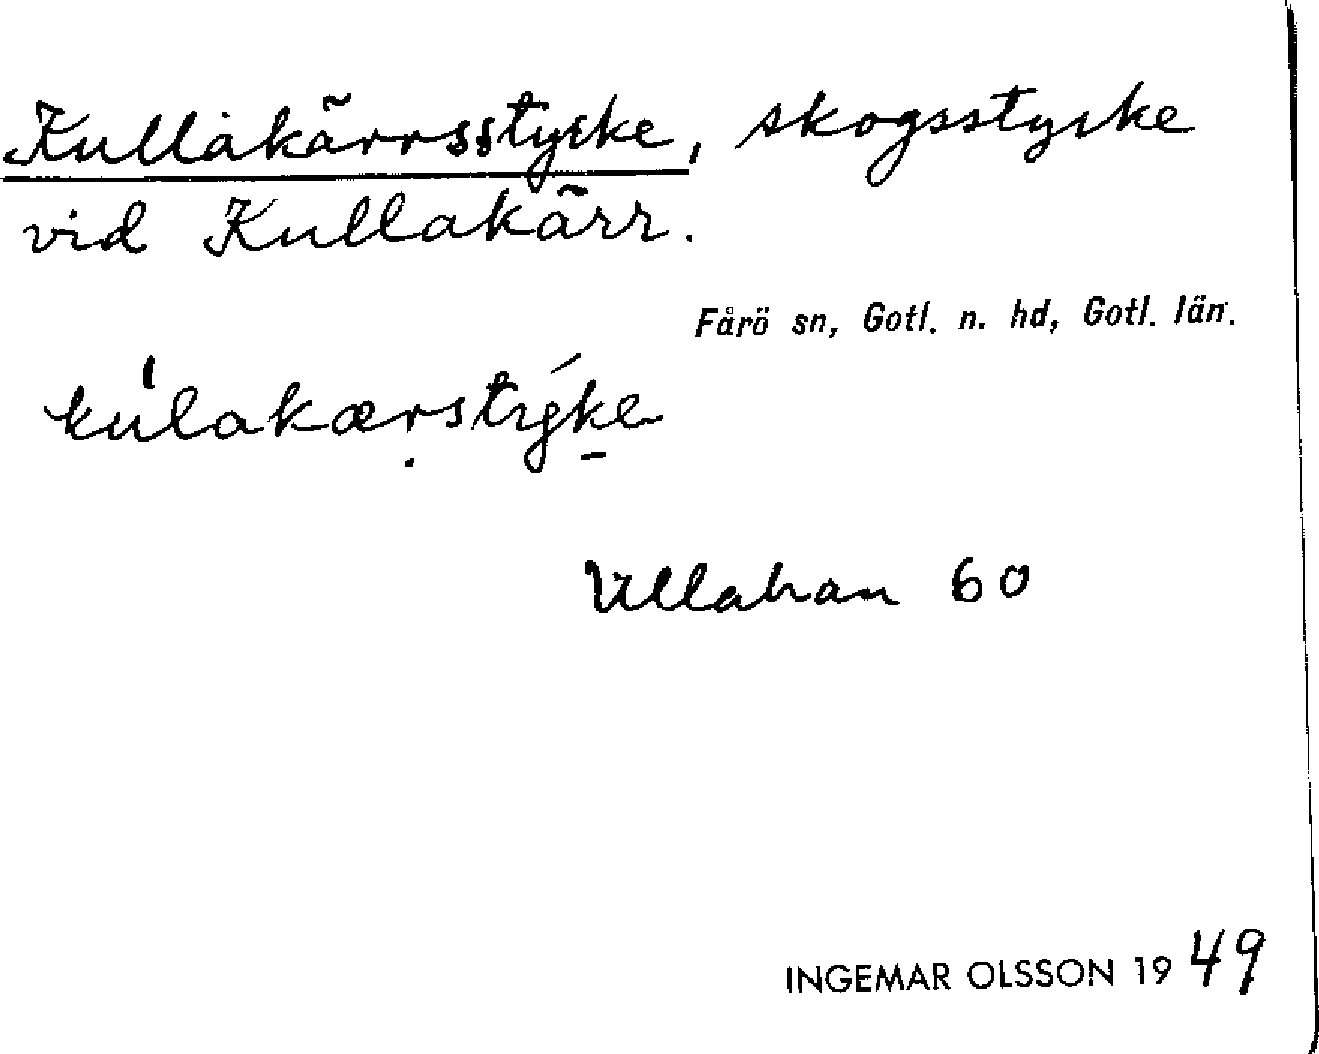 Kullakärrsstycke, skogsstycke
vid Kullakärr.
Fårö sn, Gotl. n. hd, Gotl. län.
kulakærstýke
Ullahan 60
INGEMAR OLSSON 1949